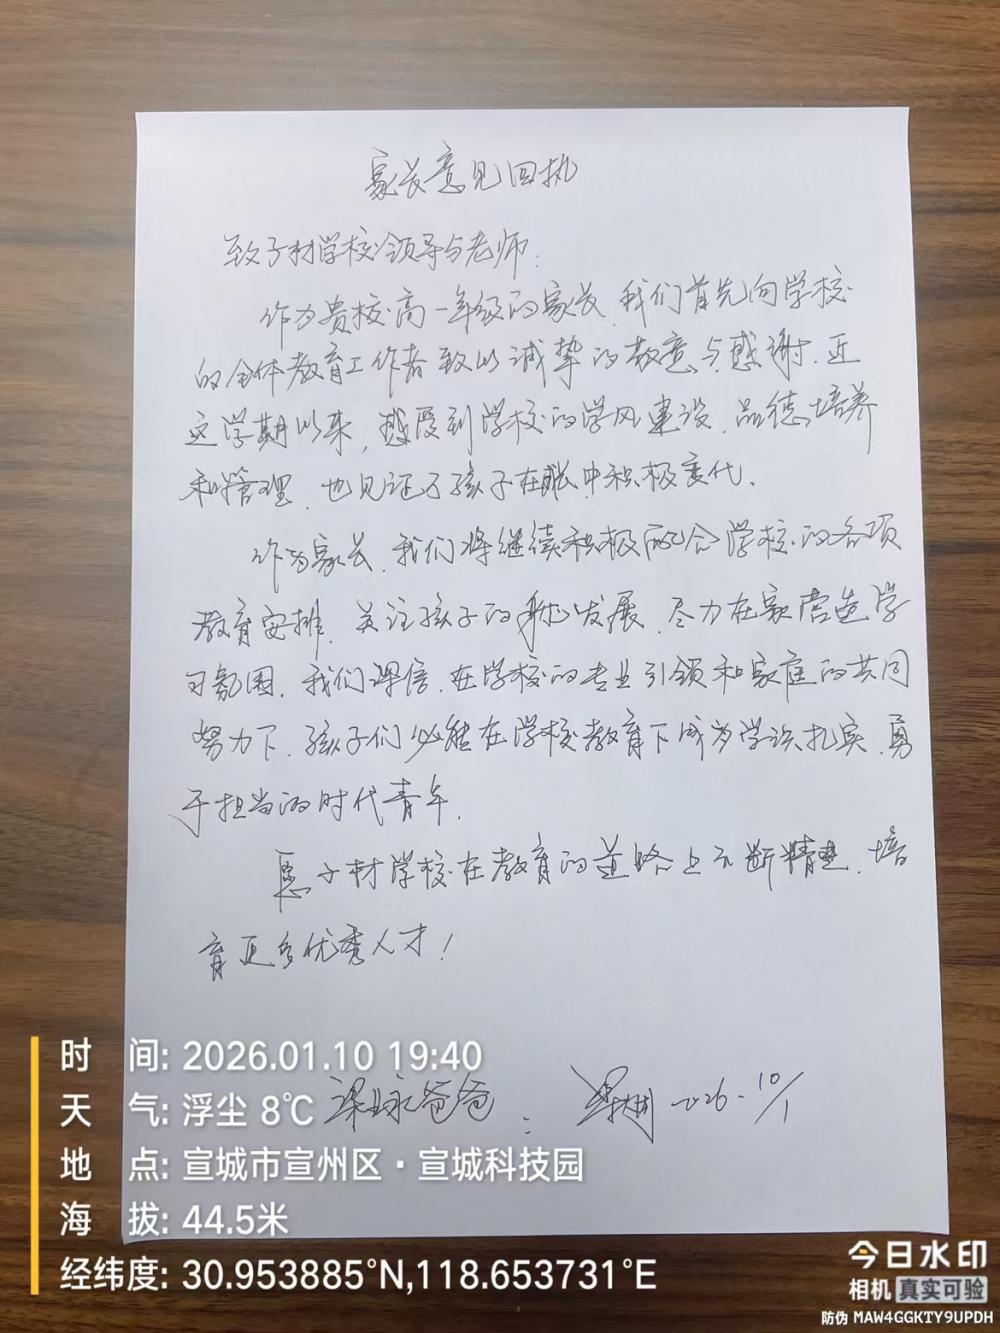 家长意见回执
致子材学校领导与老师:
作为贵校高一年级的家长,我们首先向学校
的全体教育工作者致以诚挚的敬意与感谢.近
这学期以来,感受到学校的学风建设、品德培养
和管理,也见证了孩子在成长中积极变化、
作为家长,我们将继续积极配合学校的各项
教育安排,关注孩子的身心发展,尽力在家营造学
习氛围.我们深信,在学校的专业引领和家庭的共同
努力下,孩子们必能在学校教育下成为学识扎实,勇
于担当的时代青年.
愿子材学校在教育的道路上不断精进,培
育更多优秀人才!
梁永爸爸: 2026.10/1
时 间: 2026.01.10 19:40
天 气: 浮尘 8℃
地 点: 宣城市宣州区·宣城科技园
海 拔: 44.5米
经纬度: 30.953885°N,118.653731°E
今日水印
相机 真实可验
防伪 MAW4GGKTY9UPDH